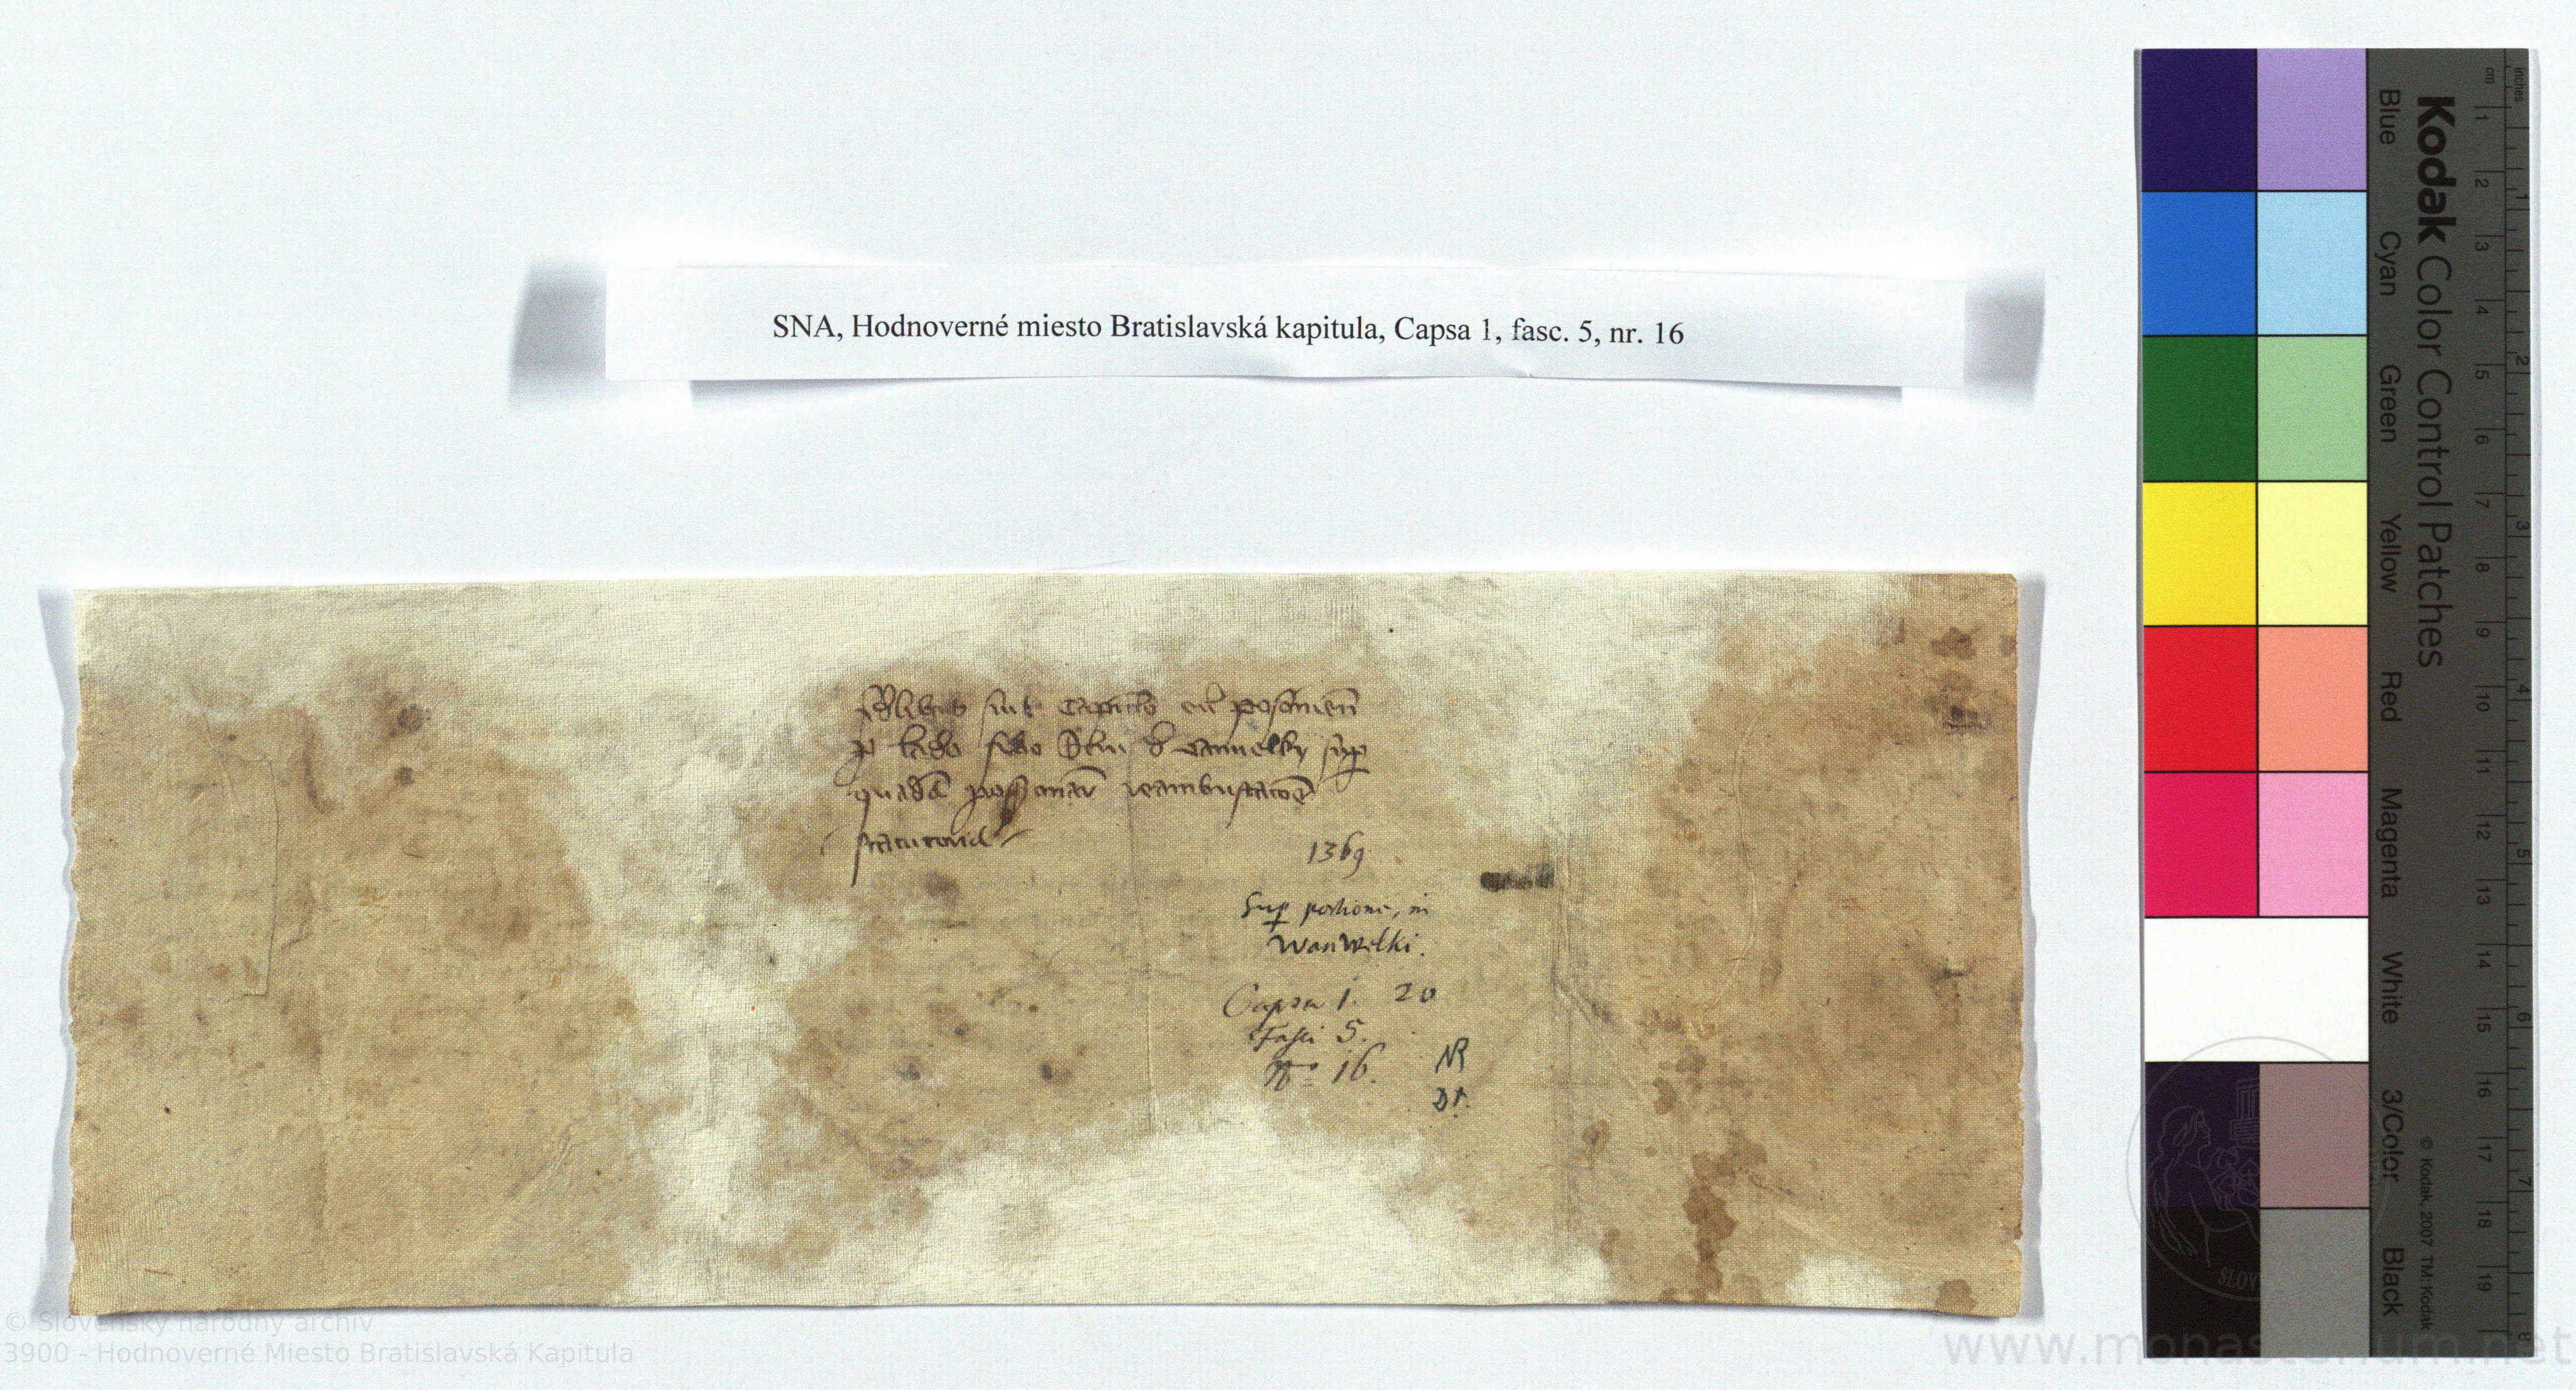 SNA, Hodnoverné miesto Bratislavská kapitula, Capsa 1, fasc. 5, nr. 16
suis Capitulo posoniens
sup
quadā possonar reambulacoē
1369
Sup portione, in
WanWelki.
Capsa 1. 20
Fasci 5.
No 16. NR
Dt.
Kodak Color Control Patches
Blue Cyan Green Yellow Red Magenta White 3/Color Black
© Kodak, 2007 TM: Kodak
cm 1 2 3 4 5 6 7 8 9 10 11 12 13 14 15 16 17 18 19
inches 1 2 3 4 5 6 7 8
© Slovenský národný archív
3900 - Hodnoverné Miesto Bratislavská Kapitula
www.monasterium.net
SLOV